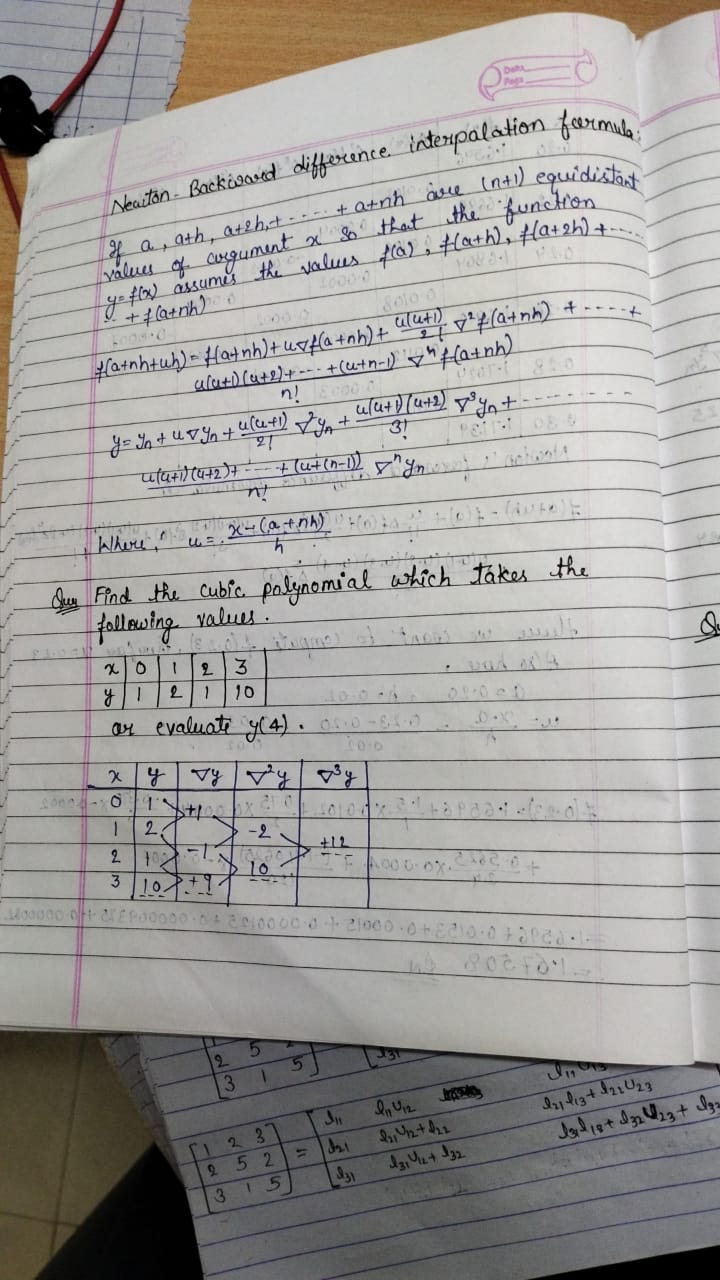 Date
Page
Newton - Backward difference interpalation formula:
If a, a+h, a+2h, + ---- + a+nh are (n+1) equidistant
values of argument x so that the function
y=f(x) assumes the values f(a), f(a+h), f(a+2h) + ----
-- + f(a+nh)
f(a+nh+uh) = f(a+nh) + u∇f(a+nh) + u(u+1)/2! ∇²f(a+nh) + ---- +
u(u+1)(u+2) + --- + (u+n-1)/n! ∇ⁿf(a+nh)
y = yn + u∇yn + u(u+1)/2! ∇²yn + u(u+1)(u+2)/3! ∇³yn + --------
u(u+1)(u+2) + ---- + (u+(n-1))/n! ∇ⁿyn
Where, u = x-(a+nh)/h
Que Find the cubic palynomial which takes the
following values.
x 0 1 2 3
y 1 2 1 10
or evaluate y(4).
x y ∇y ∇²y ∇³y
0 1 +1
1 2 -2
2 1 -1 10 +12
3 10 +9
2 5
3 1 5
1 2 3
2 5 2
3 1 5
=
l11 l11u12
l21 l21u12+l22 l21l13+l22u23
l31 l31u12+l32